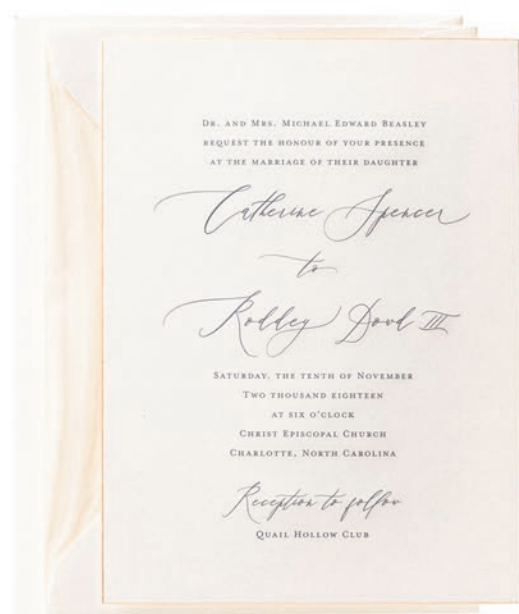 Dr. and Mrs. Michael Edward Beasley
request the honour of your presence
at the marriage of their daughter
Catherine Spencer
to
Roddey Dowd III
Saturday, the tenth of November
Two thousand eighteen
at six o'clock
Christ Episcopal Church
Charlotte, North Carolina
Reception to follow
Quail Hollow Club